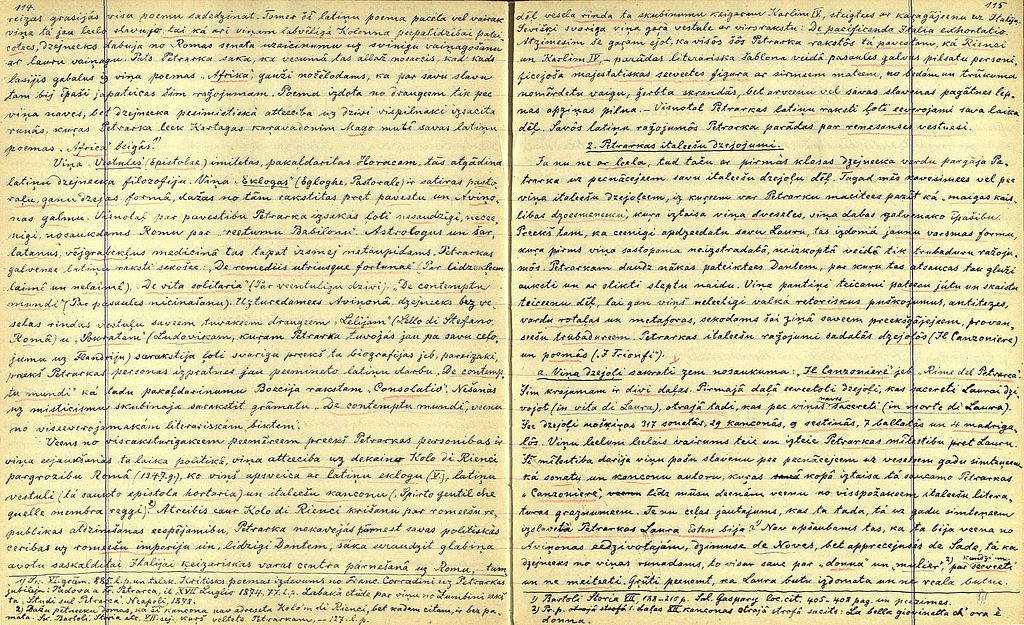 114.
reizas grasijās visu poemu sadedzinat. Tomer šī latiņu poema pacela vel vairak
viņa tā jau leelo slavu, to lai kā arī viņam labvēligā Kolonna peepalidzibai patei-
cotees, dzejneeks dabuja no Romas senata uzaicinumu uz svinigu vaiņagošanu
ar lauru vaiņagu. Pats Petrarka saka, ka vecumā tas allaž nosarcis, kad kads
lasijis gabalus iz viņa poemas „Afrika", gauži nožēlodams, ka par savu slavu
tam bij īpaši japateicas šim ražojumam. Poema izdota no draugeem tik pec
viņa naves, bet dzejneeka pesimistiskā atteeciba uz dzivi vispilnaki izsacita
runās, kuras Petrarka leek Kartagas karavadonim Mago mutē savas latiņu
poemas „Africa" beigās.¹⁾
Viņa „Vestules" (Epistolae) imitetas, pakaldaritas Horacam, tās atgādina
latiņu dzejneeka filozofiju. Viņa „Eklogas" (Egloghe, Pastorale) ir satiras pasto-
raļu, ganu dzejas formā, dažas no tām rakstitas pret pavestu un Avino-
nas galmu. Visnotaļ par pavestibu Petrarka izsakās ļoti nesaudzigi, necee-
nigi, nosaukdams Romu par reetumu Babilonu. Astrologus un šar-
latanus, vējgrabekļus medicinā tas tapat izsmej netaupidams. Petrarkas
galvenee latiņu raksti sekošee: „De remediis utriusque fortunae" (Par lidzekļeem
laimē un nelaimē). „De vita solitaria" (Par veentuligu dzivi). „De contemptu
mundi" (Par pasaules nicinašanu). Uzturedamees Avinonā dzejneeks bez ve-
selas rindas vestuļu saveem tuvakeem draugeem „Lelijam" (Lello di Stefano,
Romā) u „Sokratam" (Ludovikam, kuram Petrarka tuvojās jau pa savu ceļo-
jumu uz Flandriju) sarakstija ļoti svarigu preekš ta biografijas jeb, pareizaki,
preekš Petrarkas personas izpratnes jau peemineto latiņu darbu „De contemp-
tu mundi" kā tadu pakaldarinumu Boecija rakstam „Consolatio". Nešanās
uz misticismu skubinaja sarakstit grāmatu „De contemptu mundi", veenu
no visseverojamakām literariskām biktem.
Veens no visraksturigakeem peemēreem preekš Petrarkas personibas ir
viņa eejaukšanās ta laika politikā, viņa atteeciba uz dekaino Kolo di Rienci
pargrozibu Romā (1347.g.), ko viņš apsveica ar latiņu eklogu (V.), latiņu
vestuli (tā saukto epistola hortaria) un italeešu kanconu („Spirto gentil che
quelle membra reggi").²⁾ Atreibis caur Kolo di Rienci krišanu par romeešu re-
publikas atdzimšanas eespējamibu, Petrarka nekavejās pārnest savas politiskās
ceribas uz romeešu imperiju un, lidzigi Dantem, saka sveaudzit glabiņa
avotu saskalditai Italijai keizariskas varas centra pārnešanā uz Romu, – tam
1) Sr. VI. grām. 885. l.p. un talak. Kritisks poemas izdevums no Franc. Corradini uz Petrarkas
jubileju: Padova a Fr. Petrarca, il XVIII Luglio 1874, 77. l.p. Labakā etide par viņu no Zumbini eeks
ta „Studi sul Petrarca", Napoli, 1878.
2) Daži pētneeki domas, ka šī kancona nav adreseta Kolo'm di Rienci, bet kādam citam, ir bez pa-
mata. Sr. Bartoli, Storia etc. VII. sej., kurš veltets Petrarkam, – 127. l.p.
115
dēļ vesela rinda ta skubinumu keizaram Karlim IV, steigtees ar karagājeenu uz Italiju.
Sevišķi svariga viņa garā vestule ar virsrakstu: De pacificanda Italia exhortatio.
Atzimesim še garam ejot, ka visos šos Petrarka rakstos ta pavestam, kā Rienci
un Karlim IV, – parādas literariska šablona veidā pasaules galvas pilsatu personi-
ficejošā majestatiskas seevetes figura ar sirmeem mateem, no bēdām un trūkuma
nomērdetu vaigu, ģērbta skrandās, bet arveenu vel savas slavenas pagātnes lep-
nas apziņas pilna. – Visnotaļ Petrarkas latiņu raksti ļoti severojami sava laika
dēļ. Savos latiņu ražojumos Petrarka parādas par renesanses vestnesi.
2. Petrarkas italeešu dzejojumi.
Ja nu ne ar leela, tad taču ar pirmās klasas dzejneeka vardu pargāja Pe-
trarka uz pecnācejeem savu italeešu dzejoļu dēļ. Tagad mēs kavesimees vel pee
viņa italeešu dzejoļeem, iz kureem var Petrarku macitees pazit kā „maigas kais-
libas dzeesmeneeku", kura iztaisa viņa dveseles, viņa dabas galvenako īpašibu.
Preekš tam, ka ceenigi apdzeedatu savu Lauru, tas izdomā jaunu varsmas formu,
kura pirms viņa sastopama neizstradatā, neizkoptā veidā tik trubaduru ražoju-
mos. Petrarkam daudz nākas pateiktees Dantem, par kuru tas atsaucas tak gluži
auksti un ar slikti slēptu naidu. Viņa pantiņi teicami pateesu jūtu un skaistu
teicenu dēļ, lai gan viņš neleetigi valkā retoriskus puškojumus, antitezes,
vardu rotaļas un metaforas, sekodams šai ziņā saveem preekšgājejeem, provan-
seešu trubadureem. Petrarkas italeešu ražojumi sadalās dzejoļos (Il Canzoniere)
un poemās („I Trionfi").
a. Viņa dzejoļi sakrati zem nosaukuma: „Il Canzoniere" jeb „Rime del Petrarca".
Šim krajumam ir divi daļas. Pirmajā daļā seevetoti dzejoļi, kas sacereti Laurai dzi-
vojot (in vita de Laura), otrajā tadi, kas pec viņas naves sacereti (in morte di Laura).
Še dzejoļi nošķiņas 317 sonetās, 29 kanconās, 9 sestinās, 7 balladas un 4 madriga-
los. Viņu leelum leelais vairums teic un izteic Petrarkas mīlestibu pret Lauru.
Šī mīlestiba darija viņu pašu slavenu pee pecnācejeem uz veseleem gadu simteņeem
kā sonetu un kanconu autoru, kuras kopā iztaisa tā saucamo Petrarkas
„Canzoniere", līdz mūsu deenām veenu no visspožakeem italeešu litera-
turas greznumeem. Te nu ceļas jautajums, kas ta tada, tā uz gadu simteņeem
izslavētā Petrarkas Laura īsten bija? Nav apšaubams tas, ka ta bija veena no
Aviņonas eedzivotajām, dzimuse de Noves, bet apprecejuses de Sade, tā ka
dzejneeks no viņas runadams, to visur sauc par „donna" un „mulier",²⁾ kundzi un par seeveeti
un ne meiteeti. Grūti peenemt, ka Laura butu izdomata un ne reala butne.
1) Bartoli Storia VII, 188–210 p. Sal. Gaspary loc. cit. 405–408 pag. un peezimes.
2) Pr. p. otrajā strofā I. daļas XII kanconas otrajā strofā sacits: La bella giovinetta ch' ora è
donna.